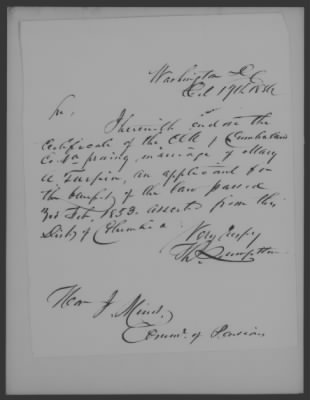 Washington D.C.
19th
Sir,
I herewith enclose the
Certificate of the Clk of Cumberland
Co Va proving marriage of Mary
A Turpin, an applicant for
the benefit of the law passed
3rd Feb, 1853. asserts from this
District of Columbia
Very Respy
Th
Hon J. Minot.
Comr. of Pension